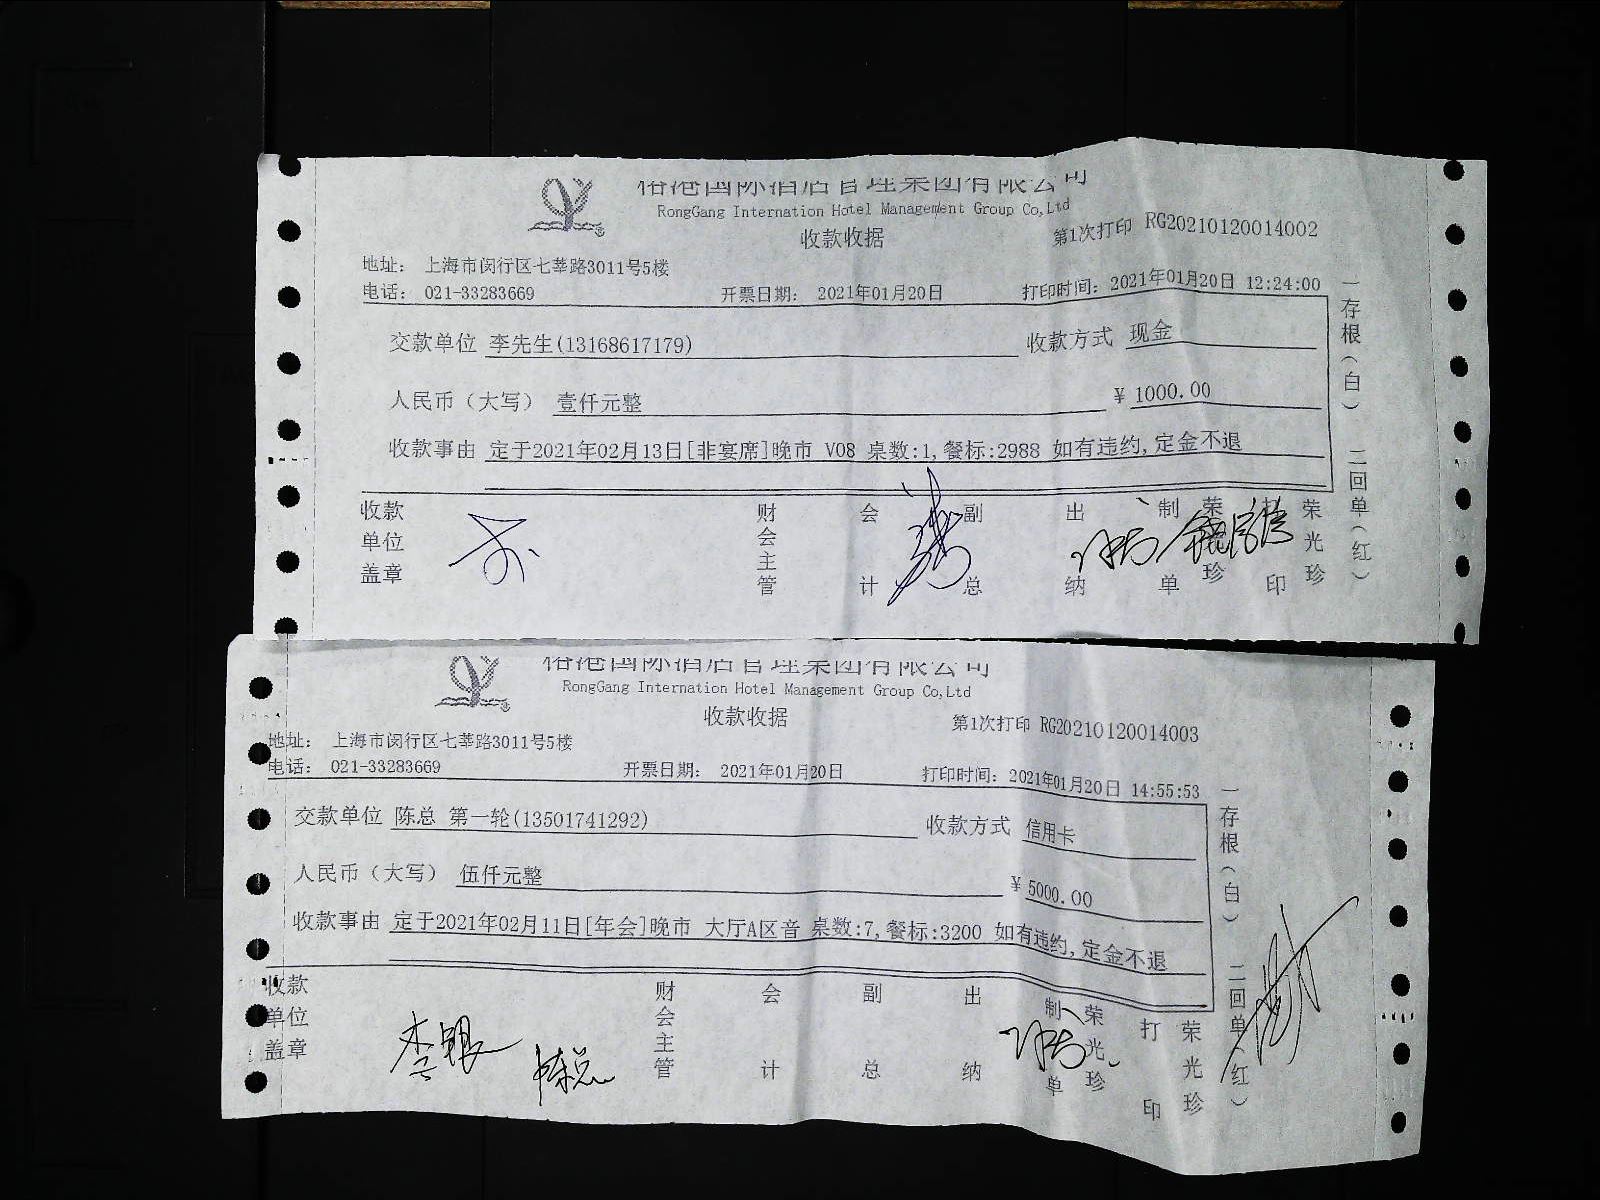 榕港国际酒店管理集团有限公司
RongGang Internation Hotel Management Group Co,Ltd
收款收据
第1次打印 RG20210120014002
地址： 上海市闵行区七莘路3011号5楼
电话： 021-33283669 开票日期： 2021年01月20日 打印时间：2021年01月20日 12:24:00
交款单位 李先生(13168617179) 收款方式 现金
人民币（大写） 壹仟元整 ¥ 1000.00
收款事由 定于2021年02月13日[非宴席]晚市 V08 桌数:1,餐标:2988 如有违约,定金不退
收款单位盖章 财会主管 会计 副总 出纳 制单 荣光珍 打印 荣光珍
一存根（白） 二回单（红）
榕港国际酒店管理集团有限公司
RongGang Internation Hotel Management Group Co,Ltd
收款收据
第1次打印 RG20210120014003
地址： 上海市闵行区七莘路3011号5楼
电话： 021-33283669 开票日期： 2021年01月20日 打印时间：2021年01月20日 14:55:53
交款单位 陈总 第一轮(13501741292) 收款方式 信用卡
人民币（大写） 伍仟元整 ¥ 5000.00
收款事由 定于2021年02月11日[年会]晚市 大厅A区音 桌数:7,餐标:3200 如有违约,定金不退
收款单位盖章 李银 陈总 财会主管 会计 副总 出纳 制单 荣光珍 打印 荣光珍
一存根（白） 二回单（红）